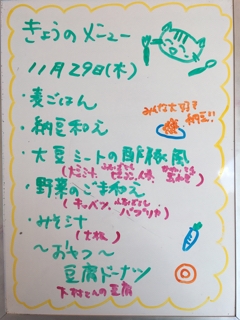 きょうのメニュー
11月29日(木)
・麦ごはん
・納豆和え
みんな大好き
納豆!!
・大豆ミートの酢豚風
(大豆ミート、
ピーマン、人参、
玉ねぎ)
・野菜のごま和え
(キャベツ、
パプリカ)
・みそ汁
(大根)
～おやつ～
豆腐ドーナツ
下村さんの豆腐